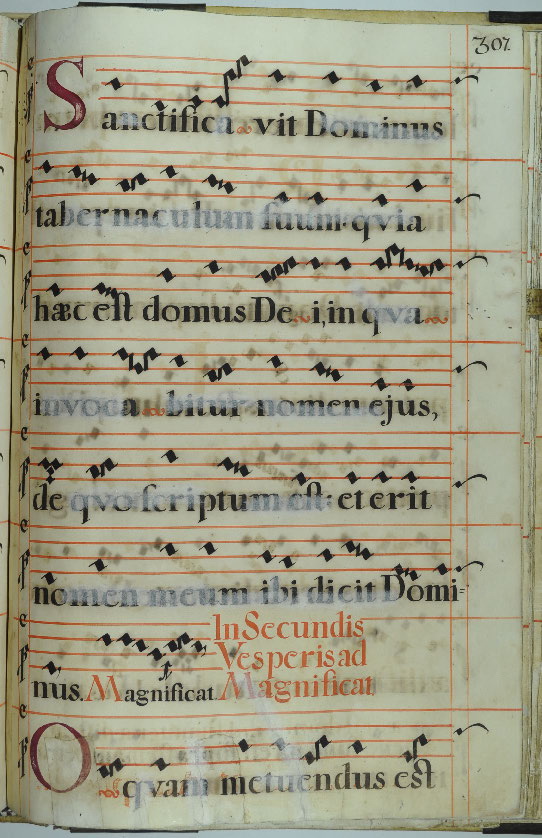 307
Sanctifica vit Dominus
tabernaculum suum: qvia
hæc est domus De i, in qva
invoca bitur nomen ejus,
de qvo scriptum est: et erit
nomen meum ibi dicit Domi=
nus. Magnificat. In Secundis
Vesperis ad
Magnificat
O qvam metuendus est